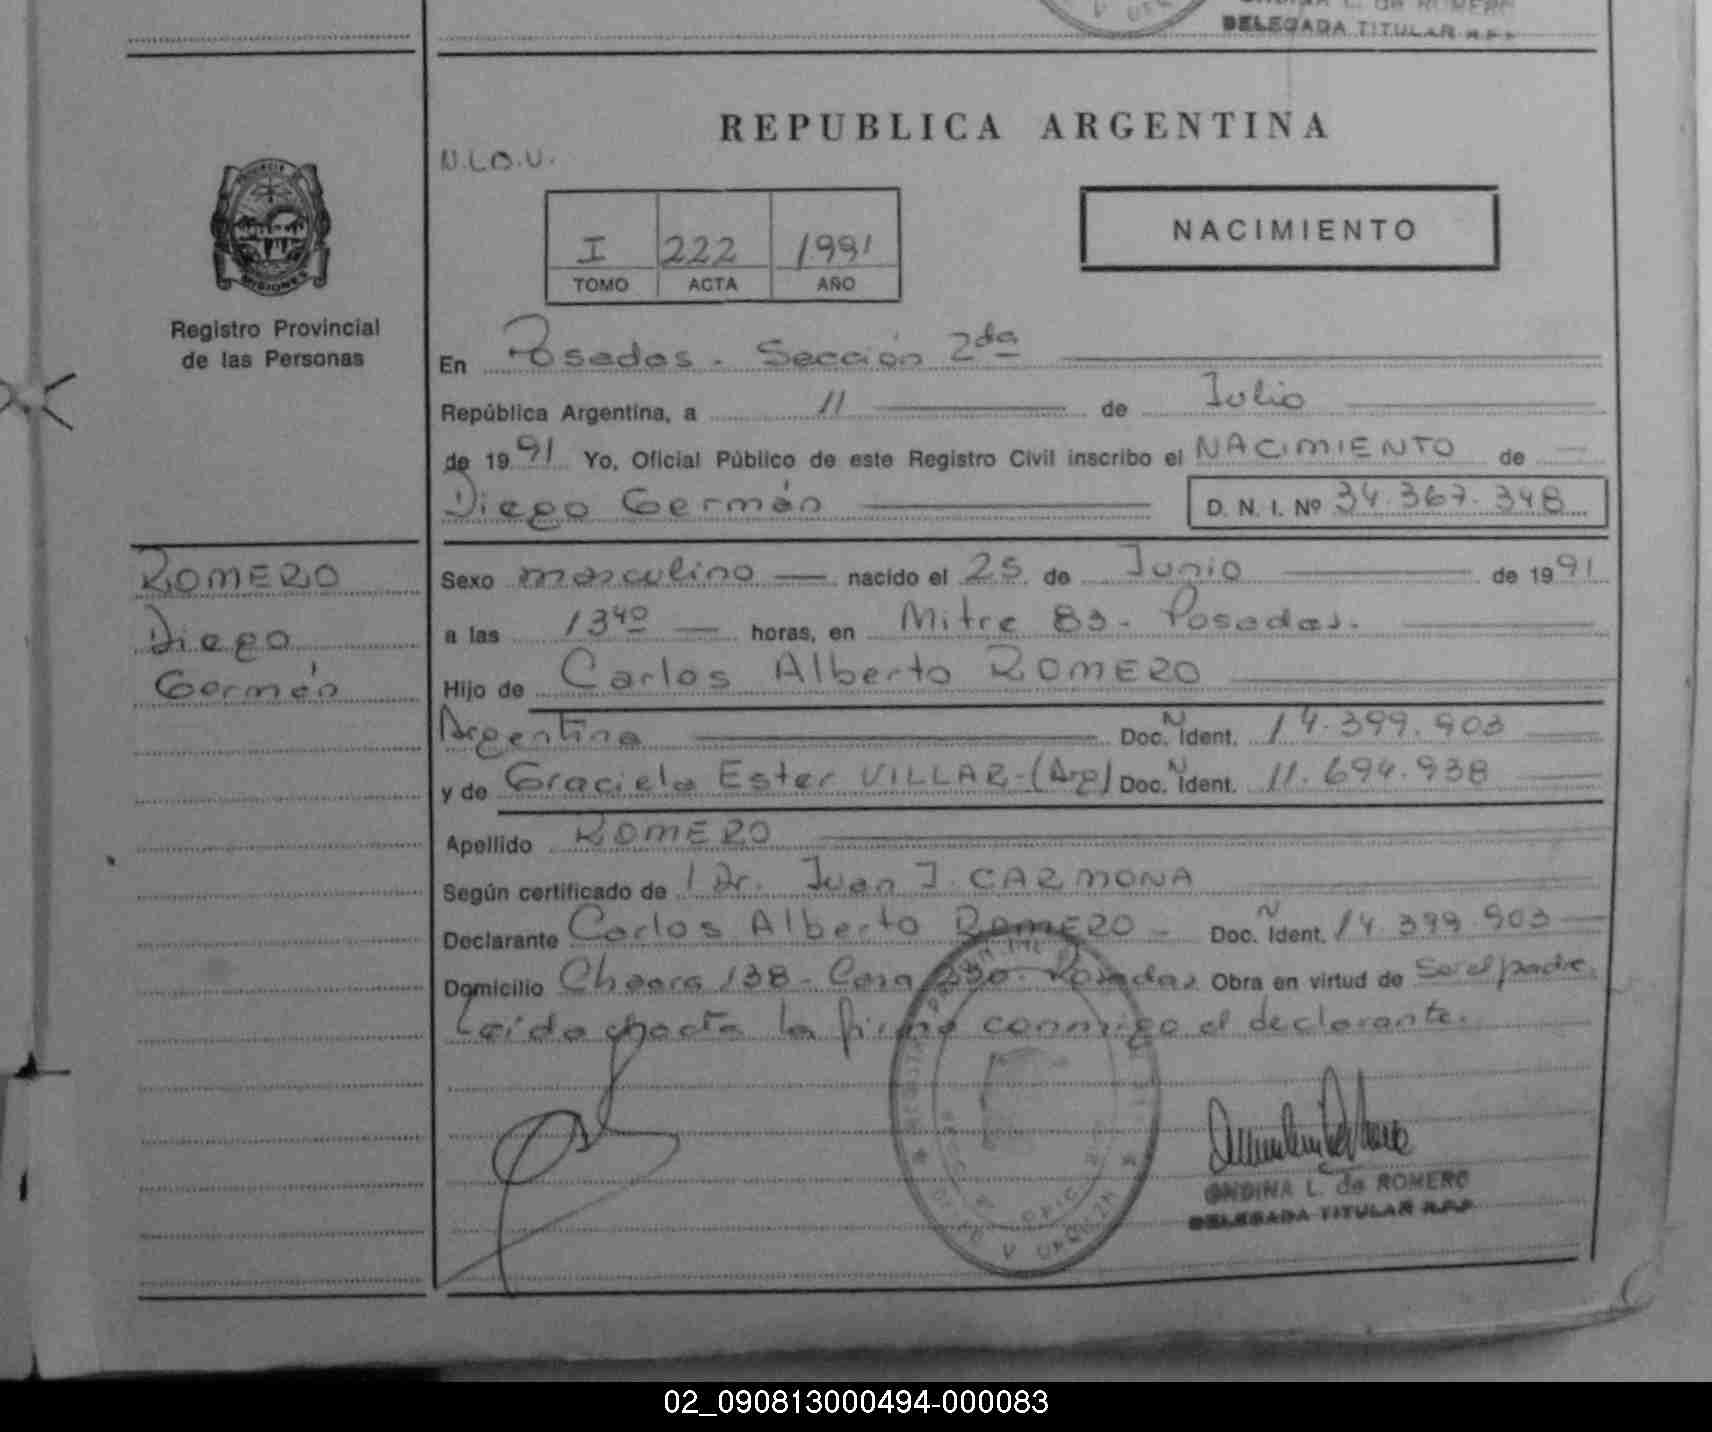 DELEGADA TITULAR R.P.P.
REPUBLICA ARGENTINA
N.L.O.U.
NACIMIENTO
I 222 1991
TOMO ACTA AÑO
PROVINCIA
MISIONES
Registro Provincial
de las Personas
En Posadas - Sección 2da
República Argentina, a 11 de Julio
de 1991 Yo, Oficial Público de este Registro Civil inscribo el NACIMIENTO de
Diego Germán D. N. I. Nº 34.367.348
ROMERO
Diego
Germán
Sexo masculino nacido el 25 de Junio de 1991
a las 13 40 horas, en Mitre 83 - Posadas.
Hijo de Carlos Alberto ROMERO
Argentina Doc. Ident. 14.399.903
y de Graciela Ester VILLAR - (Arg) Doc. Ident. 11.694.938
Apellido ROMERO
Según certificado de Dr. Juan J. CARMONA
Declarante Carlos Alberto ROMERO - Doc. Ident. 14.399.903
Domicilio Chacra 138 - Casa 330 - Posadas Obra en virtud de Ser el padre.
Leída el acta la firma conmigo el declarante.
ONDINA L. de ROMERO
DELEGADA TITULAR R.P.P.
02_090813000494-000083